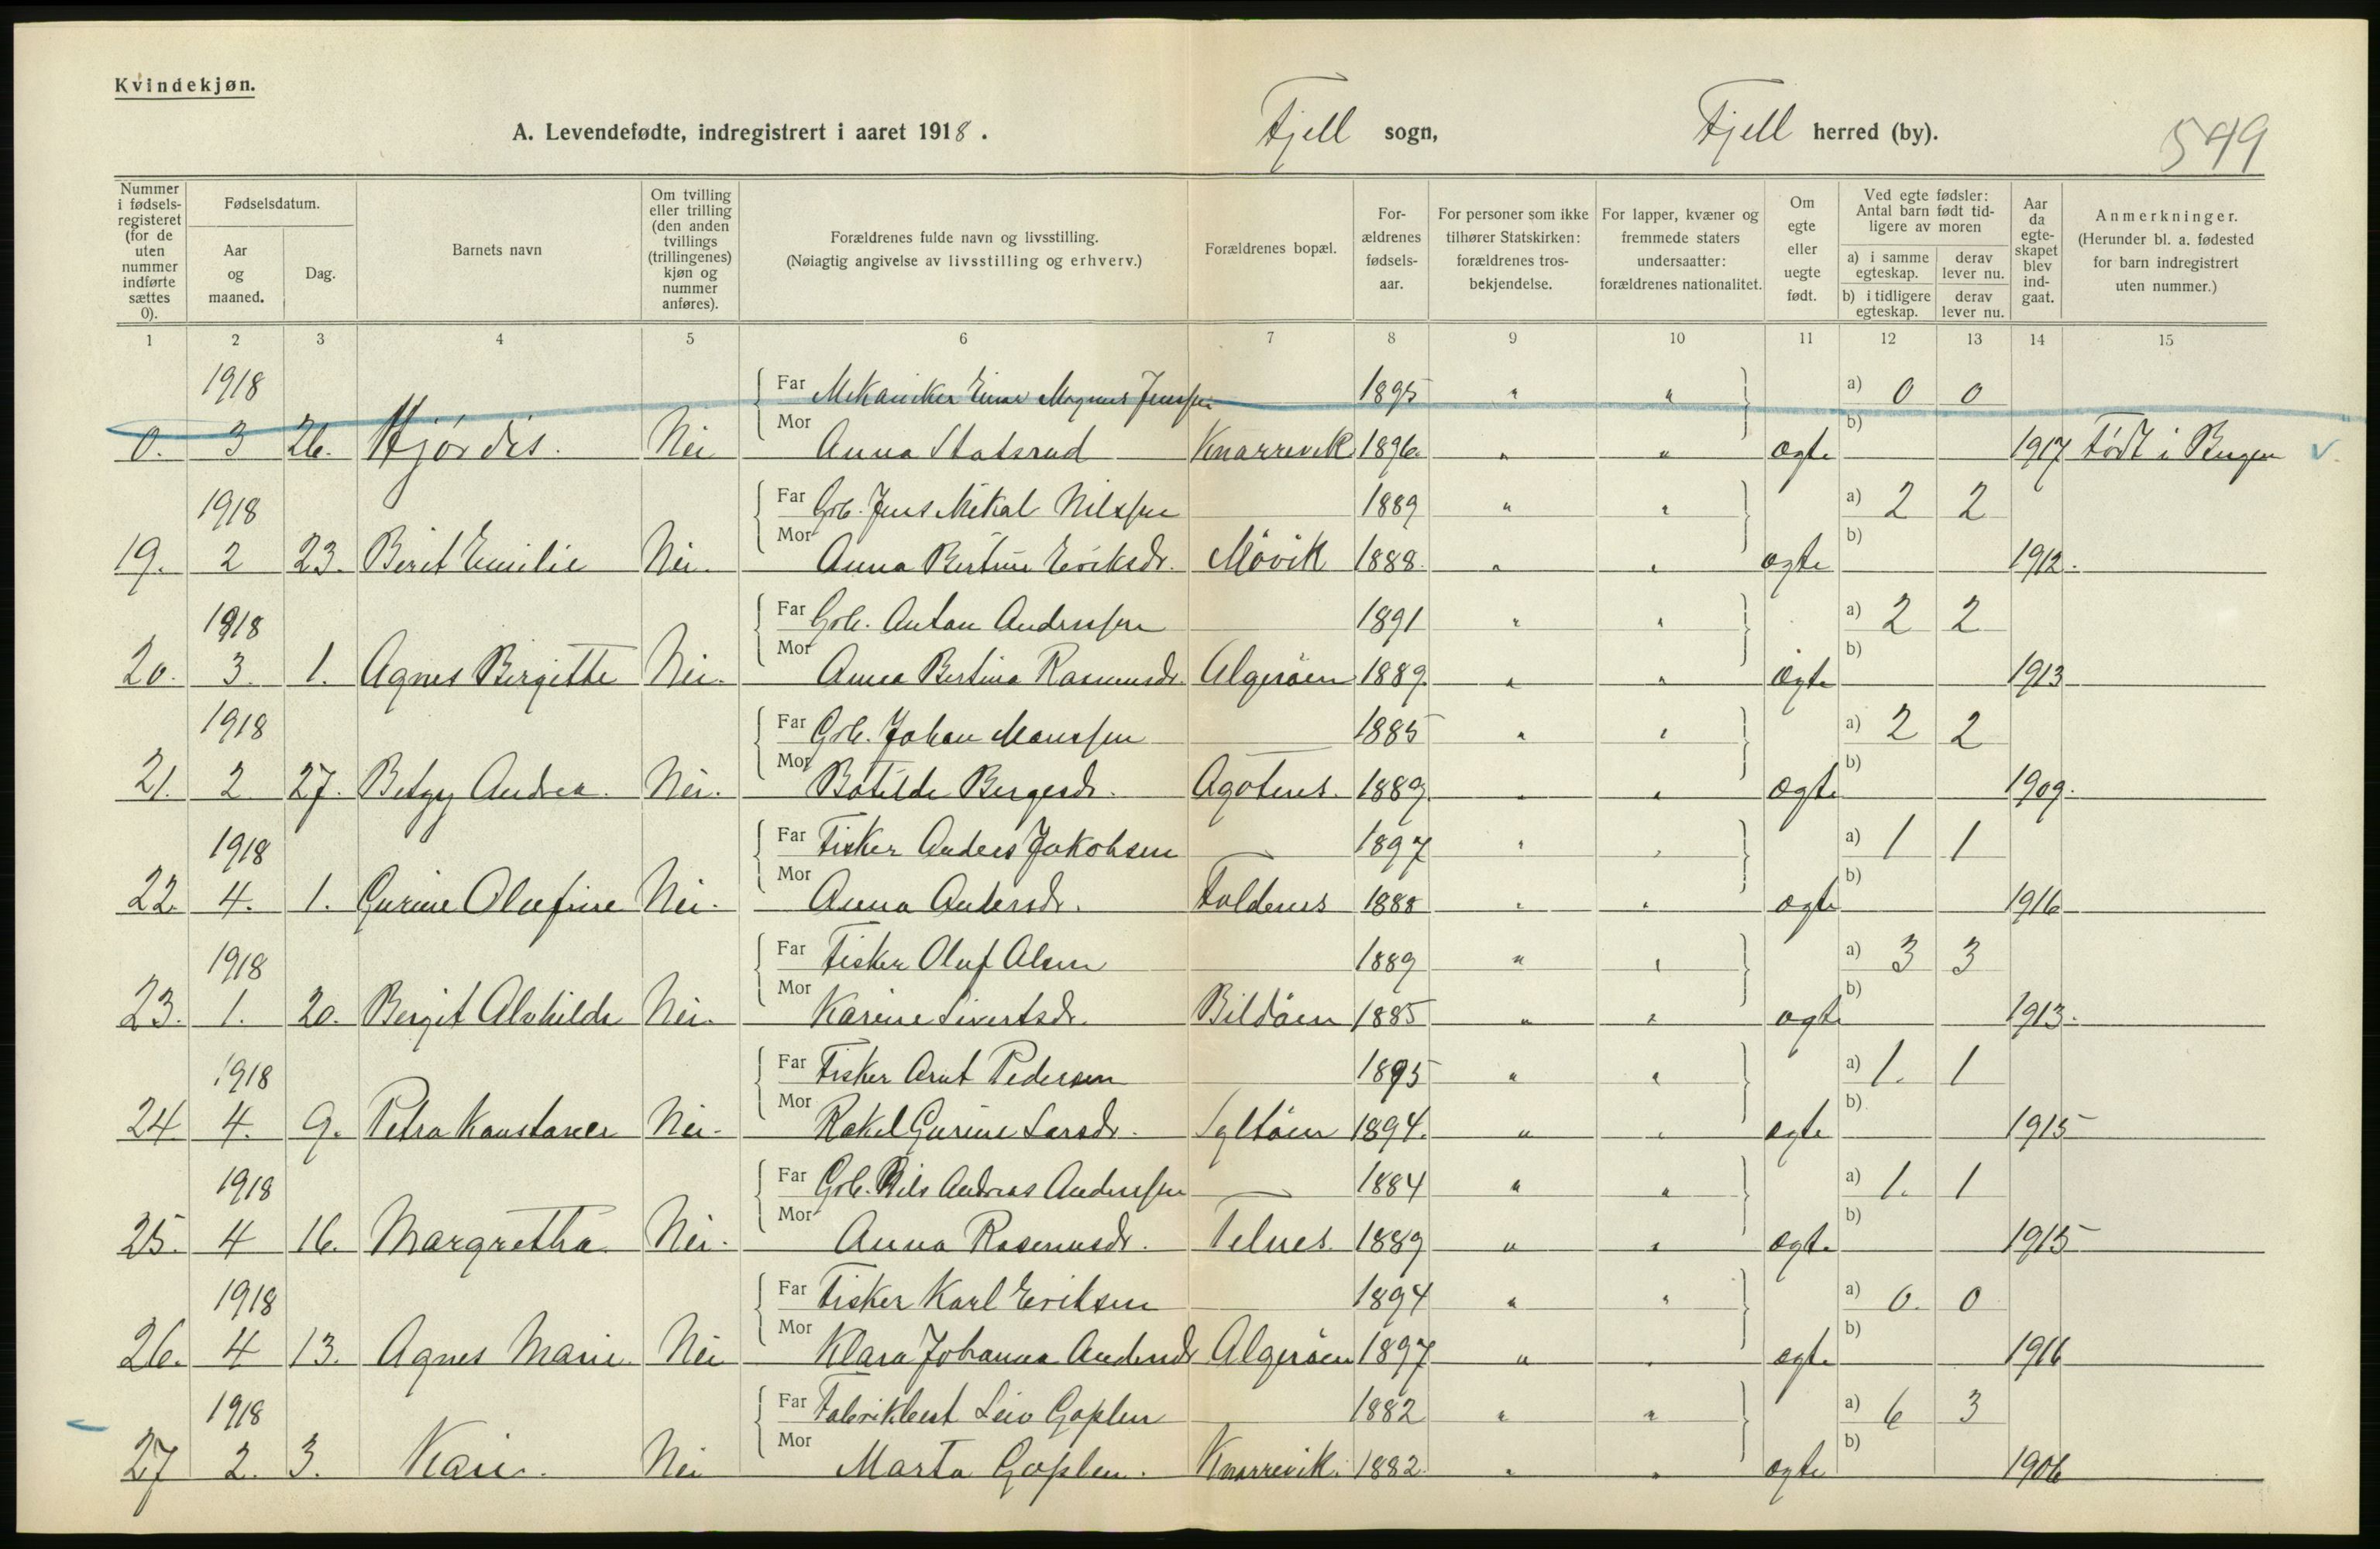 Kvindekjøn.
A. Levendefødte, indregistrert i aaret 1918. Fjell sogn, Fjell herred (by). 549
Nummer i fødselsregisteret (for de uten nummer indførte sættes 0). Fødselsdatum. Aar og maaned. Dag. Barnets navn Om tvilling eller trilling (den anden tvillings (trillingenes) kjøn og nummer anføres). Forældrenes fulde navn og livsstilling. (Nøiagtig angivelse av livsstilling og erhverv.) Forældrenes bopæl. Forældrenes fødselsaar. For personer som ikke tilhører Statskirken: forældrenes trosbekjendelse. For lapper, kvæner og fremmede staters undersaatter: forældrenes nationalitet. Om egte eller uegte født. Ved egte fødsler: Antal barn født tidligere av moren a) i samme egteskap. derav lever nu. b) i tidligere egteskap. derav lever nu. Aar da egteskapet blev indgaat. Anmerkninger. (Herunder bl. a. fødested for barn indregistrert uten nummer.)
1 2 3 4 5 6 7 8 9 10 11 12 13 14 15
1918 Far Mekaniker Einar Magnus Jenssen 1895 " " a) 0 0
0. 3 26. Hjørdis. Nei Mor Anna Statsrud Knarrevik 1896. " " ægte b) 1917 Født i Bergen v.
1918 Far Grb. Jens Mikal Nilssen 1889 " " a) 2 2
19. 2 23. Berit Emilie Nei. Mor Anna Bertine Eriksdr. Møvik 1888. " " ægte b) 1912.
1918 Far Grb. Anton Anderssen 1891 " " a) 2 2
20. 3. 1. Agnes Birgitte Nei. Mor Anna Bertina Rasmusdr. Algerøen 1889. " " Ægte b) 1913
1918 Far Grb. Johan Monssen 1885 " " a) 2 2
21. 2 27. Betzy Andrea. Nei. Mor Botilde Bergesdr. Agotnes. 1889. " " ægte b) 1909.
1918 Far Fisker Anders Jakobsen 1897 " " a) 1 1
22. 4. 1. Gurine Olufine Nei. Mor Anna Andersdr. Foldenes 1888 " " ægte b) 1916
1918 Far Fisker Oluf Olsen 1889 " " a) 3 3
23. 1. 20. Bergit Alvhilde Nei. Mor Karine Sivertsdr. Bildøen 1885 " " ægte b) 1913.
1918 Far Fisker Arnt Pedersen 1895 " " a) 1. 1
24. 4. 9. Petra Konstance Nei. Mor Rakel Gurine Larsdr. Syltøen 1894. " " ægte b) 1915
1918 Far Grb. Nils Andreas Anderssen 1884 " " a) 1. 1
25. 4 16. Margretha Nei. Mor Anna Rasmusdr. Telnes 1889 " " ægte b) 1915
1918 Far Fisker Karl Eriksen 1894 " " a) 0. 0
26. 4 13. Agnes Marie. Nei Mor Klara Johanna Andersdr Algerøen 1897 " " ægte b) 1916
1918 Far Fabrikbest Leiv Goplen 1882 " " a) 6 3
27 2. 3. Kari. Nei Mor Marta Goplen. Knarrevik. 1882. " " ægte b) 1906